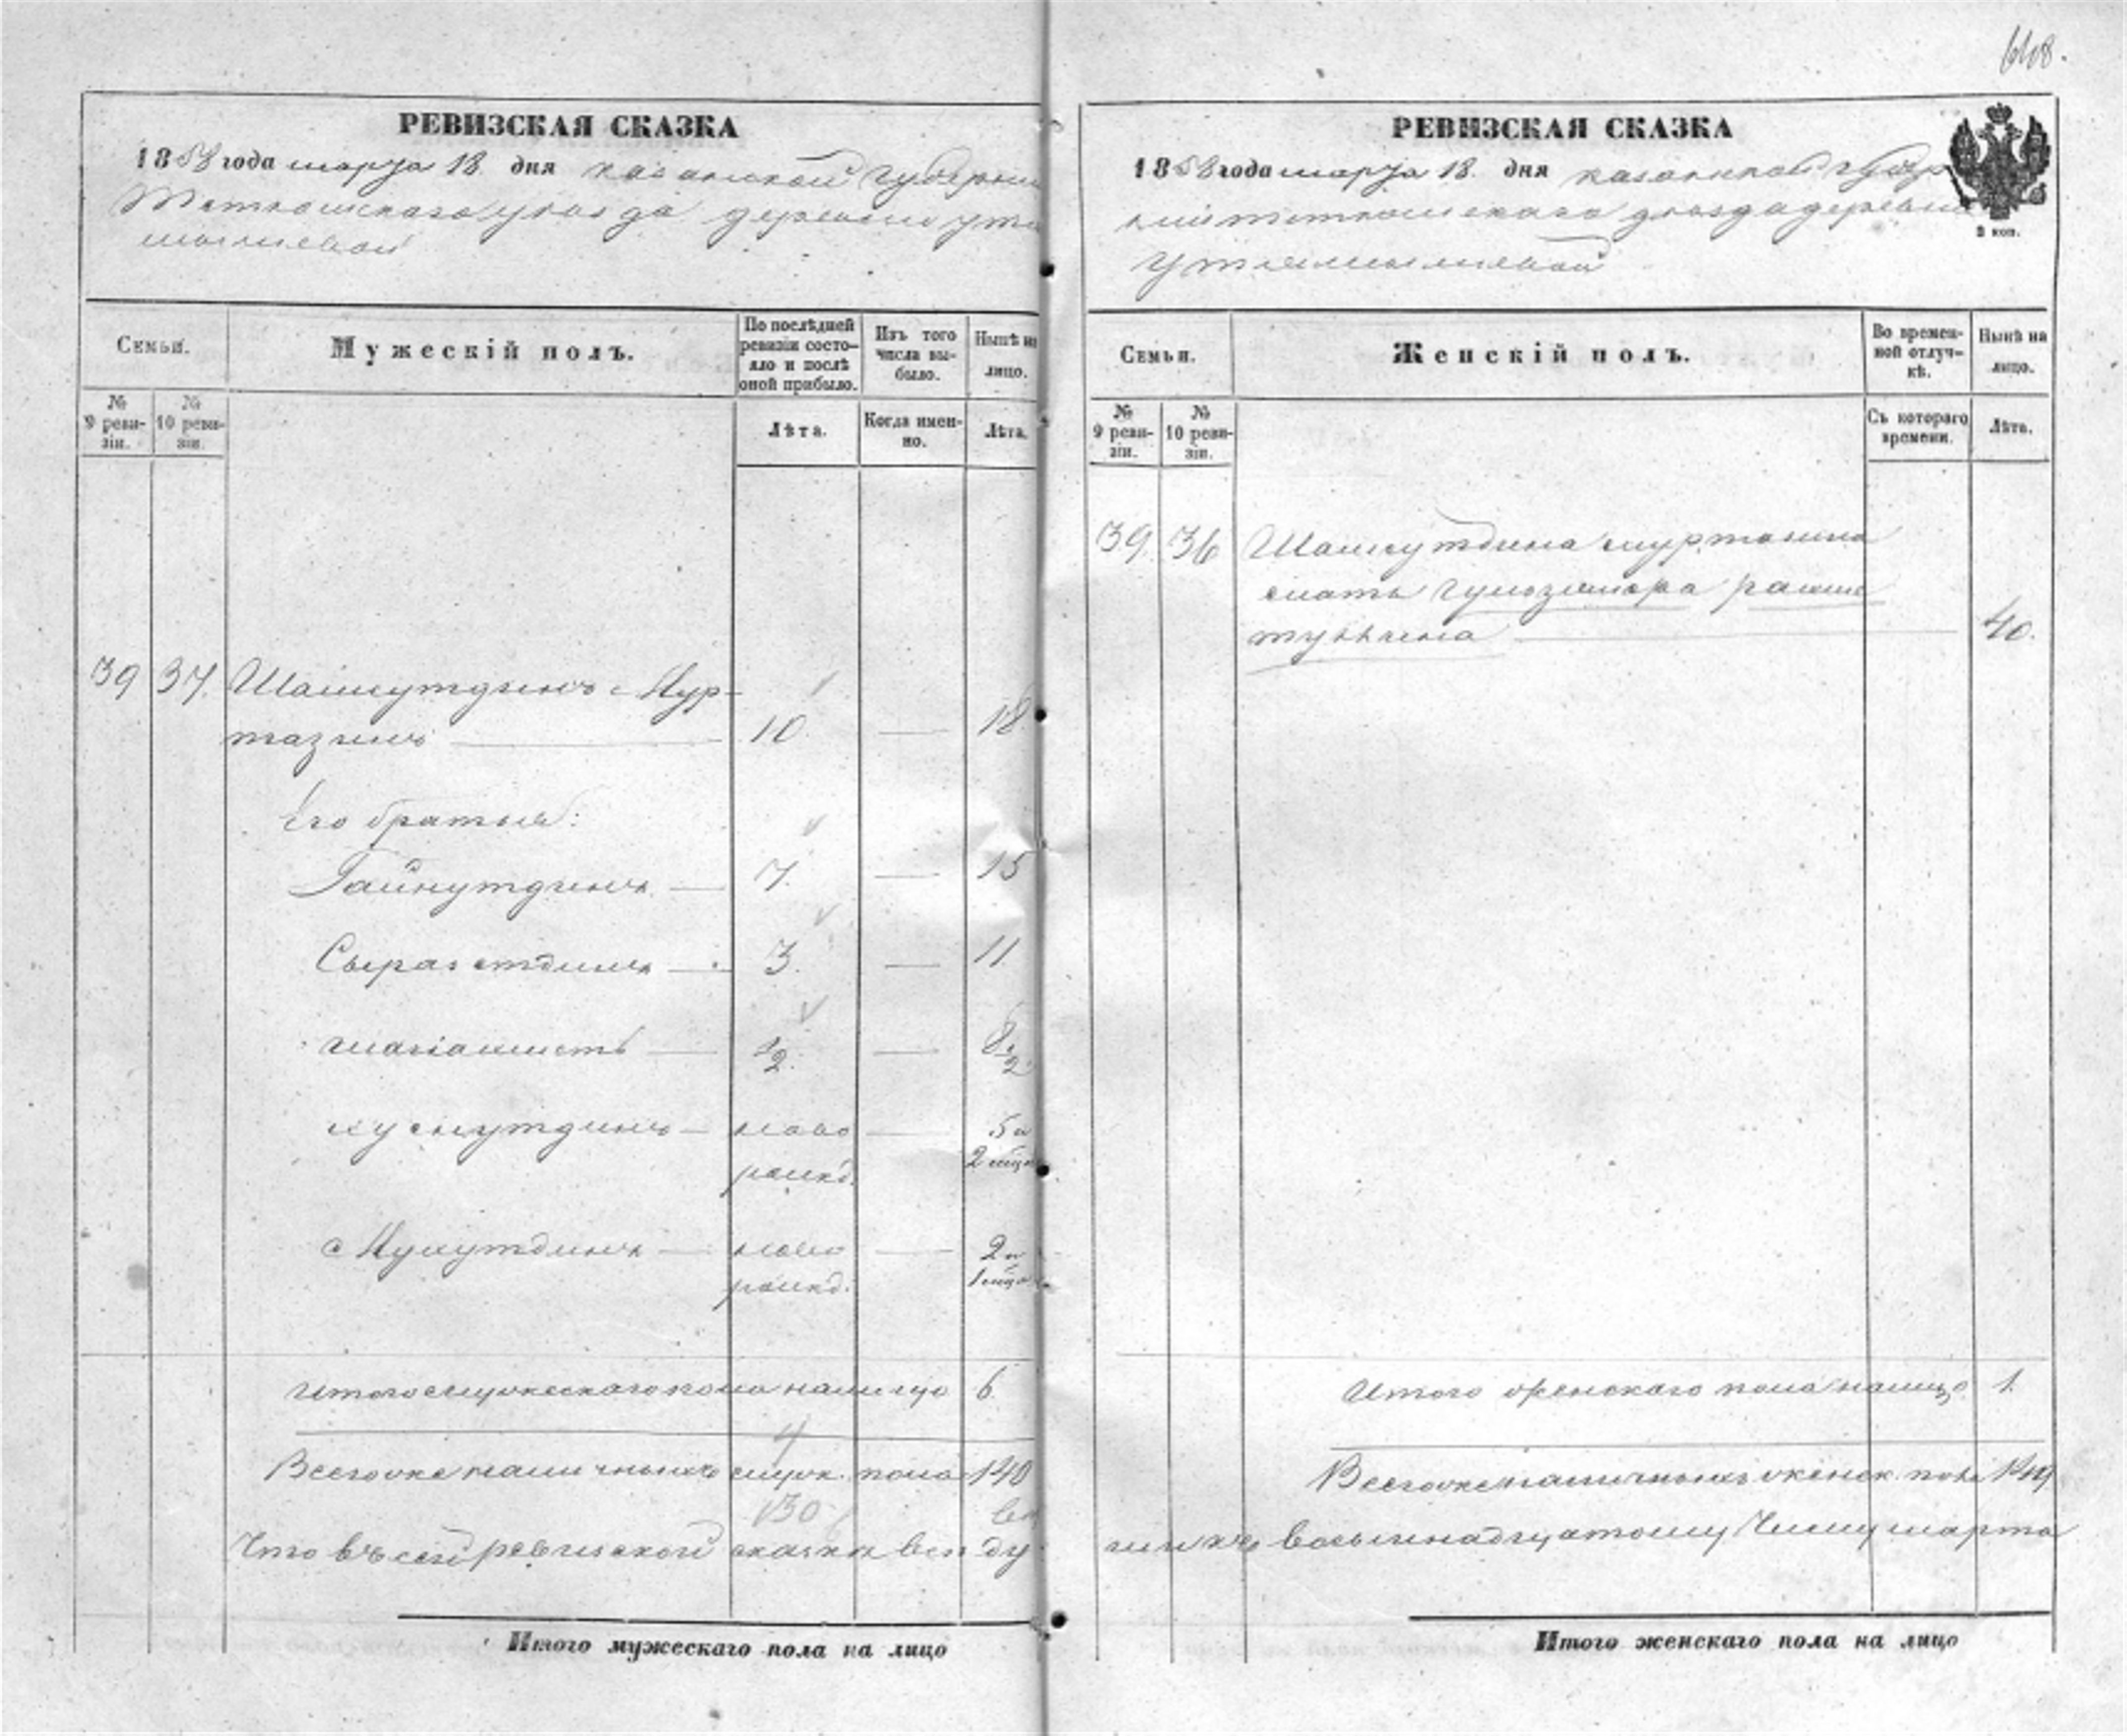 648.
РЕВИЗСКАЯ СКАЗКА
1858 года марта 18. дня казанской губернии
Тетюшскаго уезда деревни Утя
мышевой
Семьи.
Мужескій полъ.
По послѣдней ревизіи состояло и послѣ оной прибыло.
Изъ того числа выбыло.
Нынѣ на лицо.
№ 9 ревизіи.
№ 10 ревизіи.
Лѣта.
Когда именно.
Лѣта.
39 37. Шамсутдинъ Мур-
тазинъ 10. 18.
Его братья:
Гайнутдинъ 7. 15
Сыразетдинъ 3. 11.
1/2. 8 1/2
хуснутдинъ ново 5 и
рожд. 2 мѣс
ново 2 и
рожд. 1 мѣс
Итого мужескаго пола налицо 6.
4
Всего же наличныхъ муж. пола 140
130
Что въ сей ревизской сказке все ду
Итого мужескаго пола на лицо
РЕВИЗСКАЯ СКАЗКА
1858 года марта 18. дня казанской губер
ніи тетюшскаго уезда деревни
Утямышевой
2 коп.
Семьи.
Женскій полъ.
Во временной отлучкѣ.
Нынѣ на лицо.
№ 9 ревизіи.
№ 10 ревизіи.
Съ котораго времени.
Лѣта.
39. 36 Шамсутдина муртазина
мать
40.
Итого женскаго пола налицо 1.
Всего же наличныхъ женск. пола
восьмнадцатому числу марта
Итого женскаго пола на лицо